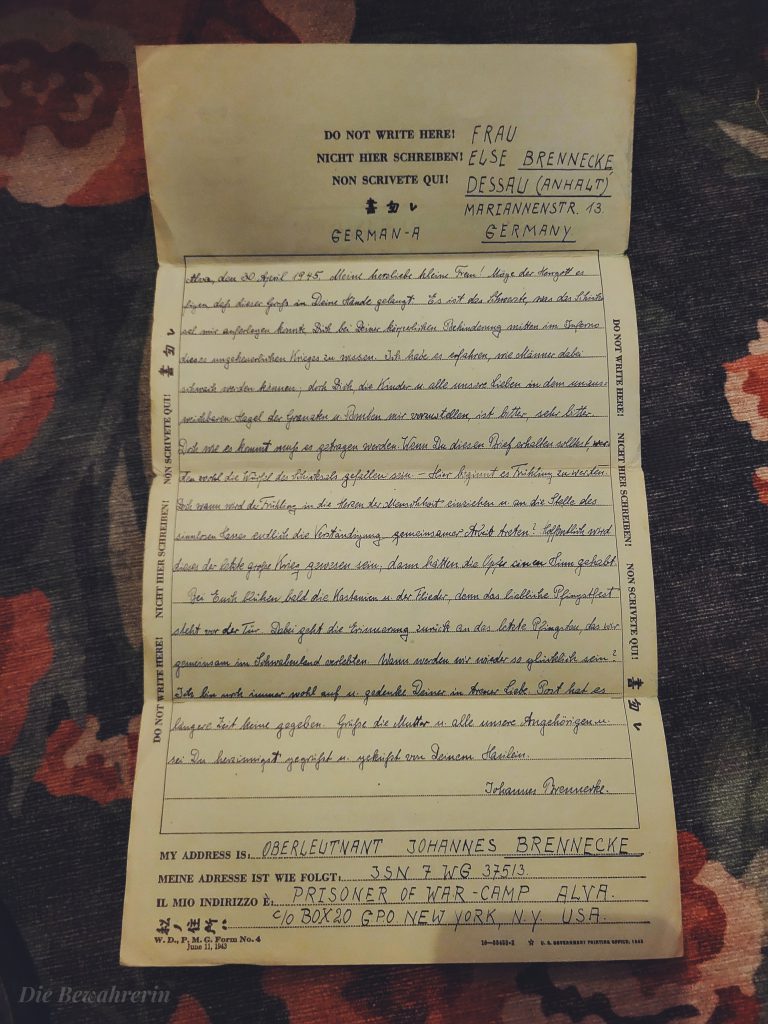 DO NOT WRITE HERE! FRAU
NICHT HIER SCHREIBEN! ELSE BRENNECKE
NON SCRIVETE QUI! DESSAU (ANHALT)
書勿レ MARIANNENSTR. 13.
GERMAN-A GERMANY
Alva, den 30. April 1945. Meine herzliebe kleine Frau! Möge der Herrgott es
fügen daß dieser Gruß in Deine Hände gelangt. Es ist das Schwerste, was das Schick-
sal mir auferlegen konnte Dich bei Deiner körperlichen Behinderung mitten im Inferno
dieses ungeheuerlichen Krieges zu wissen. Ich habe es erfahren, wie Männer dabei
schwach werden können; doch Dich, die Kinder u. alle unsere Lieben in dem unaus-
weichbaren Hagel der Granaten u. Bomben mir vorzustellen, ist bitter, sehr bitter.
Doch wie es kommt muß es getragen werden. Wenn Du diesen Brief erhalten solltest, wer-
den wohl die Würfel des Schicksals gefallen sein – Hier beginnt es Frühling zu werden.
Doch wann wird der Frühling in die Herzen der Menschheit einziehen u. an die Stelle des
sinnlosen Hasses endlich die Verständigung gemeinsamer Arbeit treten? Hoffentlich wird
dieses der letzte große Krieg gewesen sein, dann hätten die Opfer einen Sinn gehabt.
Bei Euch blühen bald die Kastanien u. der Flieder, denn das liebliche Pfingstfest
steht vor der Tür. Dabei geht die Erinnerung zurück an das letzte Pfingsten, das wir
gemeinsam im Schwabenland verlebten. Wann werden wir wieder so glücklich sein?
Ich bin noch immer wohl auf u. gedenke Deiner in treuer Liebe. Post hat es
längere Zeit keine gegeben. Grüße die Mutter u. alle unsere Angehörigen u.
sei Du herzinnigst gegrüßt u. geküßt von Deinem
Johannes Brennecke.
DO NOT WRITE HERE! NICHT HIER SCHREIBEN! NON SCRIVETE QUI! 書勿レ
DO NOT WRITE HERE! NICHT HIER SCHREIBEN! NON SCRIVETE QUI! 書勿レ
MY ADDRESS IS: OBERLEUTNANT JOHANNES BRENNECKE
MEINE ADRESSE IST WIE FOLGT: JSN 7 WG 37513
IL MIO INDIRIZZO È: PRISONER OF WAR-CAMP ALVA.
私ノ住所ハ: c/o BOX 20 G.P.O. NEW YORK, N.Y. USA.
W. D., P. M. G. Form No. 4
June 11, 1943
☆ U. S. GOVERNMENT PRINTING OFFICE: 1943
Die Bewahrerin